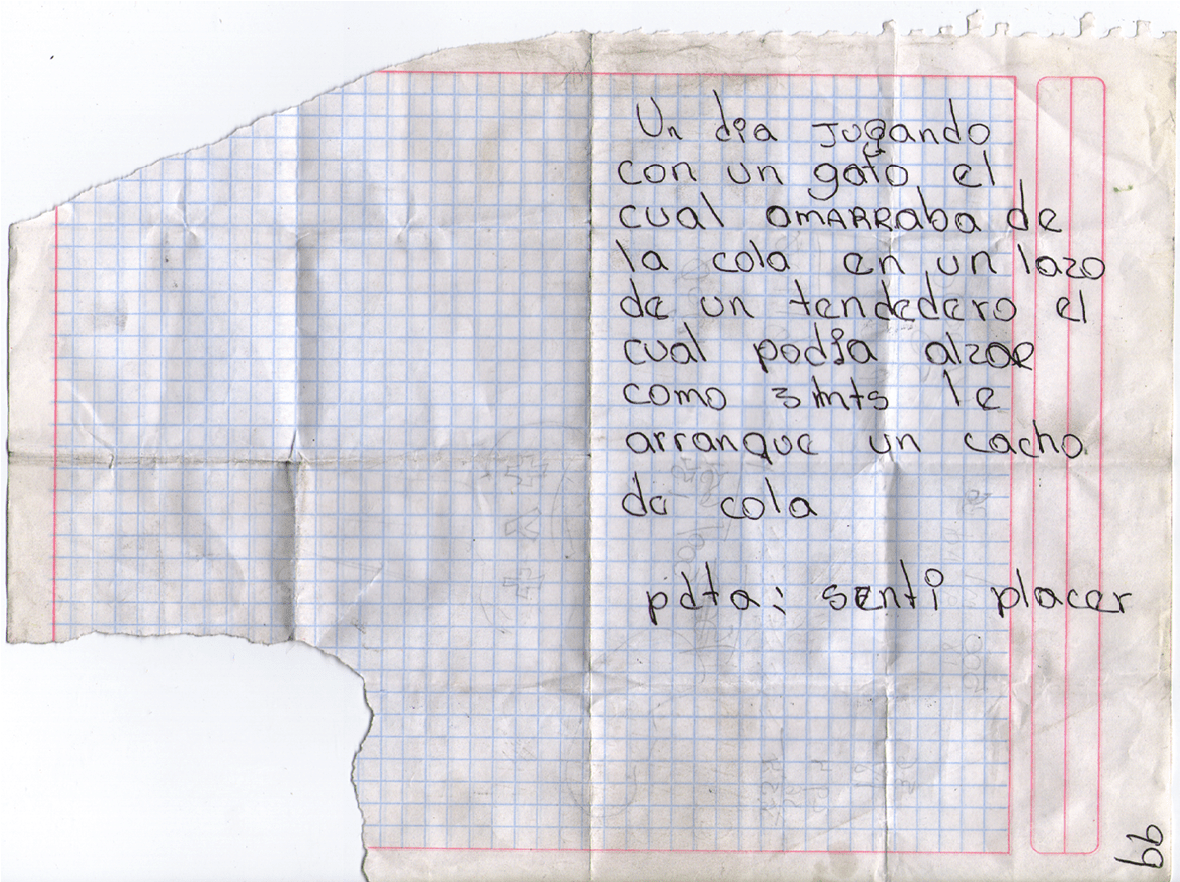 Un dia jugando
con un gato el
cual amarraba de
la cola en un lazo
de un tendedero el
cual podia alzar
como 3 mts le
arranque un cacho
de cola
pdta: senti placer